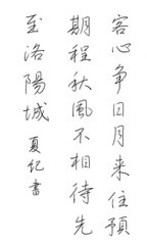 客心争日月来往預
期程秋風不相待先
至洛陽城 夏纪書